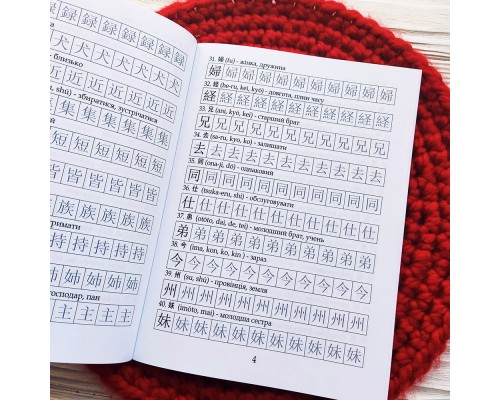 録録録録録
犬犬犬犬犬犬犬
близько
近近近近近近近
shū) - збиратися, зустрічатися
集集集集集集集
短短短短短短
皆皆皆皆皆皆
族族族族族族
тримати
持持持持持
姉姉姉姉姉
господар, пан
主主主主
31. 婦 (fu) - жінка, дружина
婦婦婦婦婦婦婦婦婦婦婦
32. 経 (he-ru, kei, kyō) - довгота, плин часу
経経経経経経経経経経経
33. 兄 (ani, kyō, kei) - старший брат
兄兄兄兄兄兄兄兄兄兄兄
34. 去 (sa-ru, kyo, ko) - залишати
去去去去去去去去去去去
35. 同 (ona-ji, dō) - однаковий
同同同同同同同同同同同
36. 仕 (tsuka-eru, shi) - обслуговувати
仕仕仕仕仕仕仕仕仕仕仕
37. 弟 (otōto, dai, de, tei) - молодший брат, учень
弟弟弟弟弟弟弟弟弟弟弟
38. 今 (ima, kon, ko, kin) - зараз
今今今今今今今今今今今
39. 州 (su, shū) - провінція, земля
州州州州州州州州州州州
40. 妹 (imōto, mai) - молодша сестра
妹妹妹妹妹妹妹妹妹妹妹
4